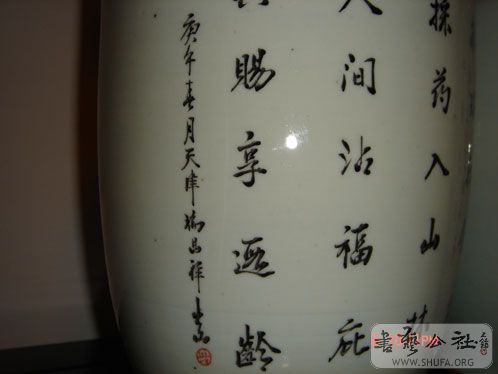 採药入山
人间沾福庇
賜享遐齡
庚午春月天津瑞昌祥
書藝公社
WWW.SHUFA.ORG